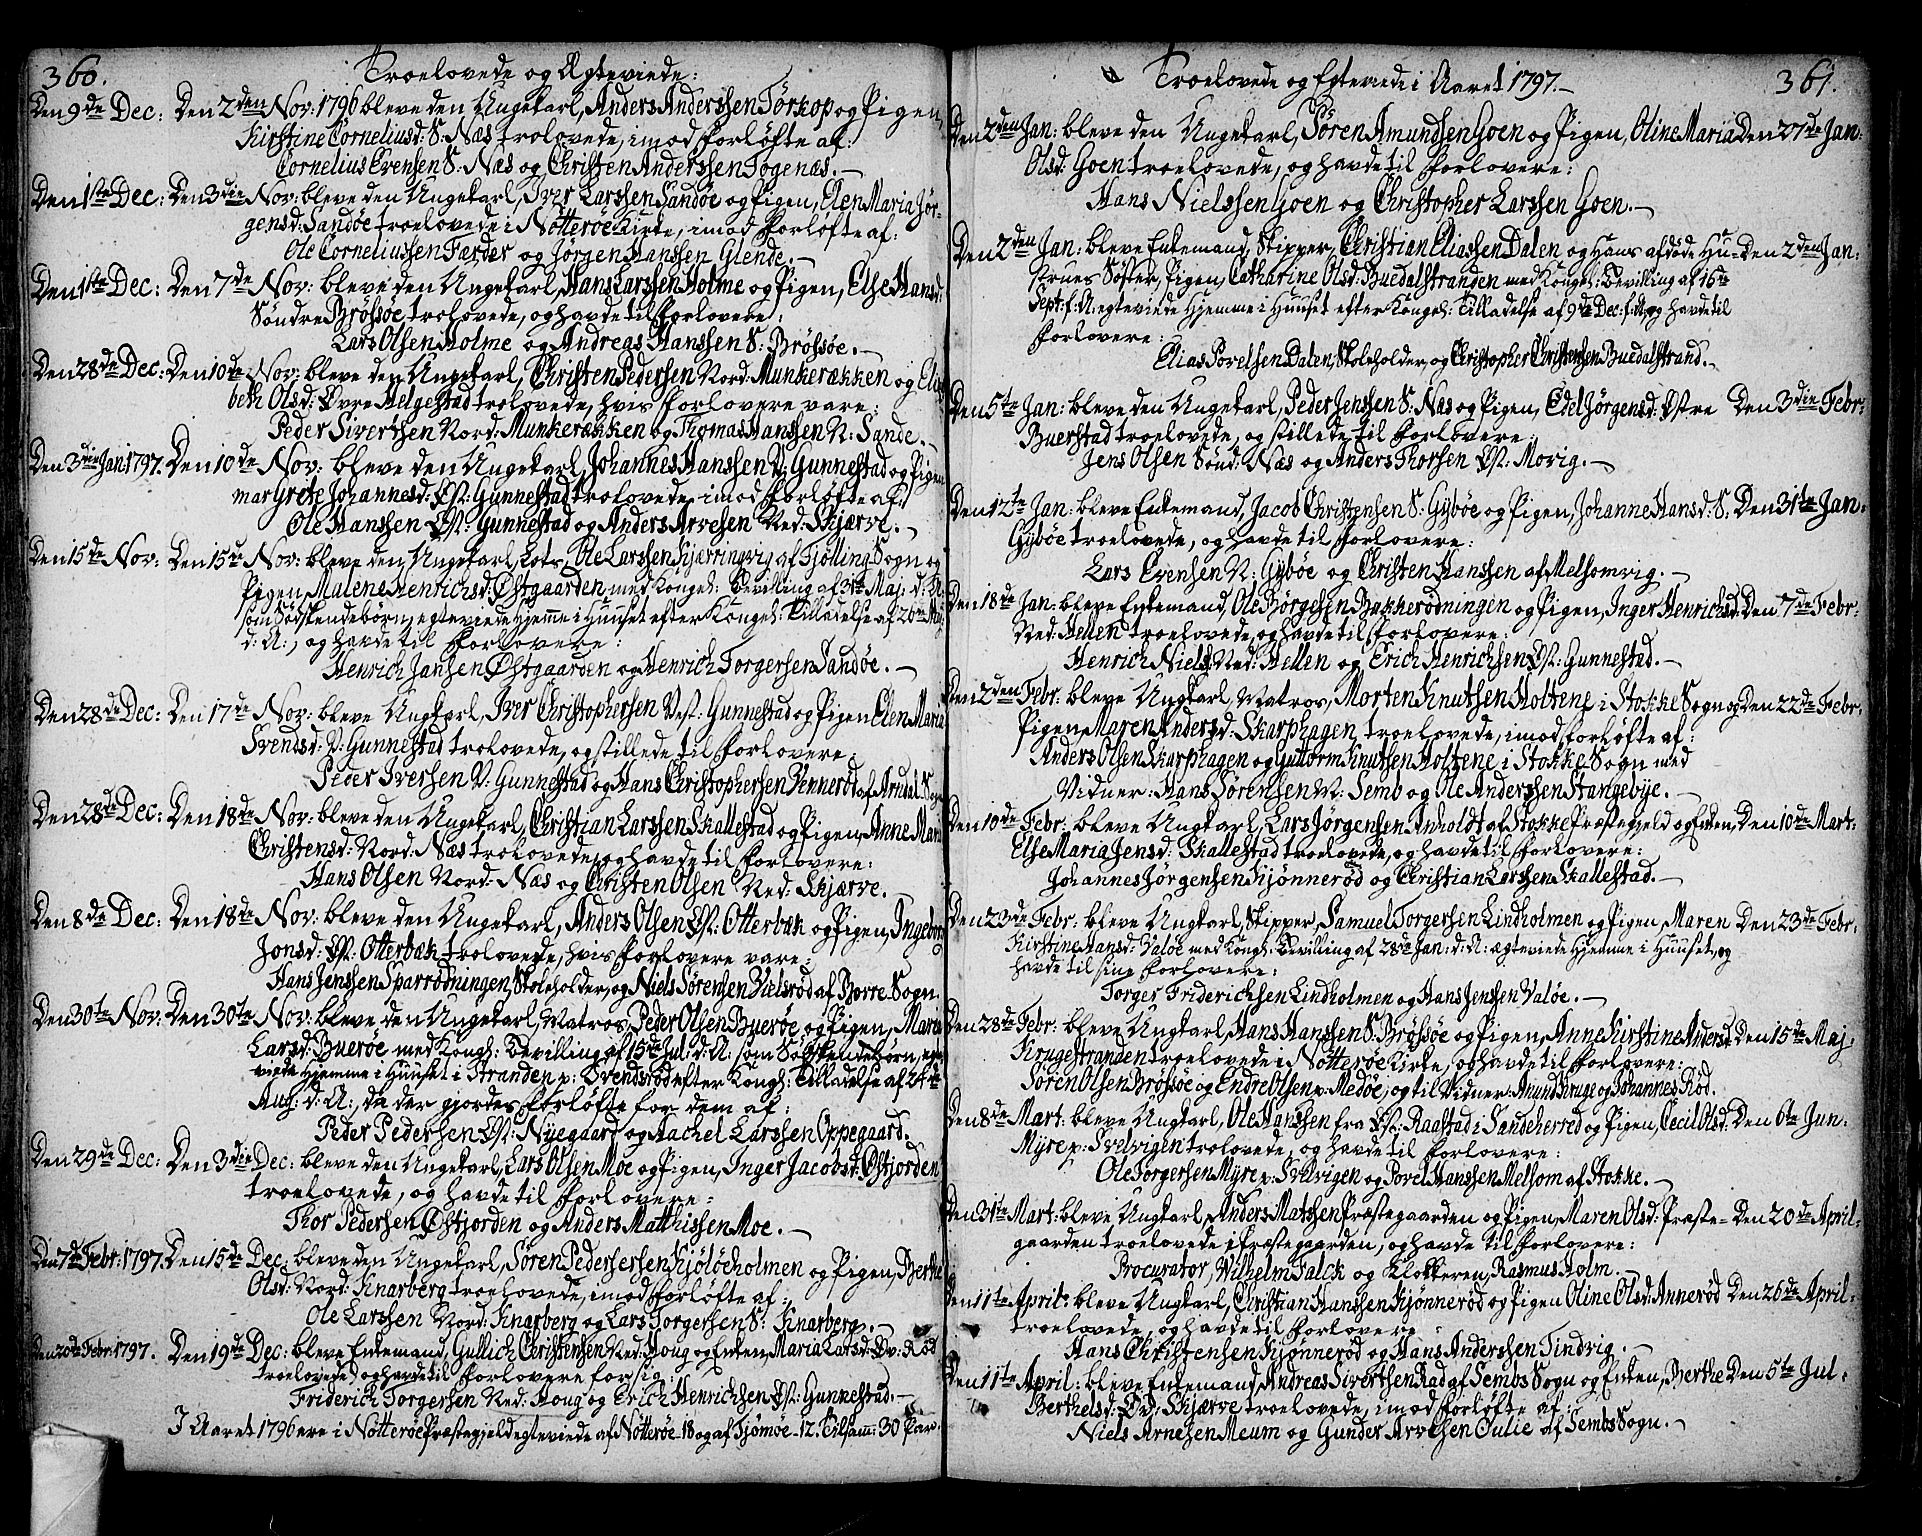 360. Troelovede og Ægteviede:
Den 9de Dec: Den 2den Nov: 1796 bleve den Ungekarl, Anders Anderssen Torkop og Pigen,
Kirstine Corneliusd: S: Næs trolovede, imod Forløfte af:
Cornelius Evensen S: Næs og Christen Anderssen Togenæs. —
Den 1ste Dec: Den 3die Nov: bleve den Ungekarl, Iver Larssen Sandøe og Pigen, Elen Maria Jør-
gensd: Sandøe troelovede i Nötteröe Kirke, imod Forløfte af:
Ole Corneliussen Færder og Jørgen Hanssen Glende. —
Den 1ste Dec: Den 7de Nov: bleve den Ungekarl, Hans Larssen Holme og Pigen, Else Hansd:
Söndre Brössöe trolovede, og havde til Forlovere:
Lars Olsen Holme og Andreas Hanssen S: Brössöe. —
Den 28de Dec: Den 10de Nov: bleve den Ungekarl, Christen Pedersen Nord: Munkerækken og Elisa
beth Olsd: Øvre Helgestad trolovede, hvis Forlovere vare:
Peder Sivertsen Nord: Munkerækken og Thomas Hanssen N: Sande. —
Den 3die Jan: 1797. Den 10de Nov: bleve den Ungekarl, Johannes Hanssen V: Gunnestad og Pigen
Margrete Johannesd: Øst: Gunnestad trolovede, imod Forløfte af:
Ole Hanssen Øst: Gunnestad og Anders Arvesen Ned: Skjærve. —
Den 15de Nov: Den 15de Nov: bleve den Ungekarl, Lots, Ole Larssen Kjærringvig af Tjølling Sogn og
Pigen, Malene Henrichsd: Østgaarden med Kongel: Bevilling af 3die Maj: d: A:
som Södskendebörn, egteviede Hjemme i Huuset efter Kongel: Tilladelse af 26de Maj
d: A:, og havde til Forlovere:
Henrich Jansen Østgaarden og Henrich Torgersen Sandøe. —
Den 28de Dec: Den 17de Nov: bleve Ungkarl, Iver Christophersen Vest: Gunnestad og Pigen Elen Maria
Svendsd: V: Gunnestad trolovede, og stillede til Forlovere:
Peder Iversen V: Gunnestad og Hans Christophersen Vennerød af Arndal Sogn
Den 28de Dec: Den 18de Nov: bleve den Ungekarl, Christian Larssen Skallestad og Pigen, Anne Maria
Christensd: Nord: Næs trolovede, og havde til Forlovere:
Hans Olsen Nord: Næs og Christen Olsen Ned: Skjærve. —
Den 8de Dec: Den 18de Nov: bleve den Ungekarl, Anders Olsen Øst: Otterbæk og Pigen, Ingeborg
Jonsd: Øst: Otterbæk trolovede, hvis Forlovere vare:
Hans Jenssen Sparrodningen, Skoleholder, og Niels Sørensen Vielsrød af Borre Sogn.
Den 30te Nov: Den 30te Nov: bleve den Ungekarl, Matros, Peder Olsen Bueröe og Pigen, Maria
Larsd: Bueröe med Kongl: Bevilling af 15de Jul: d: A: som Södskendebörn, egte-
viede Hjemme i Huuset i Stranden p: Svendsrød efter Kongl: Tilladelse af 24de
Aug: d: A:, da der gjordes Forløfte for dem af:
Peder Pedersen Øst: Nyegaard og Aachel Larssen Oppegaard.
Den 29de Dec: Den 3die Dec: bleve den Ungekarl, Lars Olsen Moe og Pigen, Inger Jacobsd: Østjorden
troelovede, og havde til Forlovere:
Thor Pedersen Østjorden og Anders Matthissen Moe. —
Den 7de Febr: 1797. Den 15de Dec: bleve den Ungekarl, Sören Pedersersen Kjölöeholmen og Pigen, Berthe
Olsd: Nord: Knarberg troelovede, imod Forløfte af:
Ole Larssen Nord: Knarberg og Lars Torgersen S: Knarberg. —
Den 20de Febr: 1797. Den 19de Dec: bleve Enkemand, Gullich Christensen Ned: Houg og Enken, Maria Larsd: Øv: Rød
troelovede, og havde til Forlovere for sig:
Friderich Torgersen Ned: Houg og Erich Henrichsen Øst: Gunnestad. —
I Aaret 1796 ere i Nötteröe Præstegjeld egteviede af Nötteröe 18 og af Tjømöe 12. Tilsamm: 30 Par.
Troelovede og Egteviede i Aaret 1797. — 361.
Den 2den Jan: bleve den Ungekarl, Sören Amundsen Goen og Pigen, Oline Maria Den 27de Jan:
Olsd: Goen troelovede, og havde til Forlovere:
Hans Nielssen Goen og Christopher Larssen Goen. —
Den 2den Jan: bleve Enkemand, Skipper, Christian Eliassen Dalen og Hans afdöde Hu- Den 2den Jan:
strues Söster, Pigen, Catharine Olsd: Buedalstranden med Kongel: Bevilling af 16te
Sept: f: A: egteviede Hjemme i Huuset efter Kongel: Tilladelse af 9de Dec: f: A:, og havde til
Forlovere:
Elias Porelsen Dalen, Skoleholder, og Christopher Christensen Buedalstrand. —
Den 5te Jan: bleve den Ungekarl, Peder Jenssen S: Næs og Pigen, Edel Jørgensd: Østre Den 3die Febr:
Buerstad troelovede, og stillede til Forlovere:
Jens Olsen Sönd: Næs og Anders Thorsen Øst: Morig. —
Den 12te Jan: bleve Enkemand, Jacob Christensen S: Gyböe og Pigen, Johanne Hansd: S. Den 31te Jan:
Gyböe troelovede, og havde til Forlovere:
Lars Evensen N: Gyböe og Christen Hanssen af Melsomvig. —
Den 18de Jan: bleve Enkemand, Ole Børgesen Bakkerödningen og Pigen, Inger Henrichsd: Den 7de Febr:
Ned: Hellen troelovede, og havde til Forlovere:
Henrich Niels: Ned: Hellen og Erich Henrichsen Øst: Gunnestad. —
Den 2den Febr: bleve Ungkarl, Matros, Morten Knutsen Holtene i Stokke Sogn og Den 22de Febr:
Pigen, Maren Andersd: Skarphagen troelovede, imod Forløfte af:
Anders Olsen Skarphagen og Guttorm Knutsen Holtene i Stokke Sogn med
Vidner: Hans Sörensen N: Semb og Ole Anderssen Stangebye. —
Den 10de Febr: bleve Ungkarl, Lars Jørgensen Anholdt af Stokke Præstegjeld og Enken, Den 10de Mart:
Else Maria Jensd: Skallestad troelovede, og havde til Forlovere:
Johannes Jørgensen Kjönneröd og Christian Larssen Skallestad. —
Den 23de Febr: bleve Ungkarl, Skipper, Samuel Torgersen Lindholmen og Pigen, Maren Den 23de Febr:
Kirstine Hansd: Valöe med Kongl: Bevilling af 28de Jan: d: A: ægteviede Hjemme i Huuset, og
havde til sine Forlovere:
Torger Friderichsen Lindholmen og Hans Jenssen Valöe. —
Den 28de Febr: bleve Ungkarl, Hans Hanssen S: Brössöe og Pigen, Anne Kirstine Andersd: Den 15de Maj:
Krugestranden troelovede i Nötteröe Kirke, og havde til Forlovere:
Sören Olsen Brössöe og Endre Olsen p: Medöe, og til Vidner: Amund Kruge og Johannes Röd.
Den 8de Mart: bleve Ungkarl, Ole Hanssen fra Øst: Raastad i Sandeherred og Pigen, Cecil Olsd: Den 6te Jun:
Myre p: Svelvigen trolovede, og havde til Forlovere:
Ole Torgersen Myre p: Svelvigen og Povel Hanssen Melsom af Stokke. —
Den 31te Mart: bleve Ungkarl, Anders Matssen Præstegaarden og Pigen, Maren Olsd: Præste- Den 20de April:
gaarden troelovede i Præstegaarden, og havde til Forlovere:
Procurator, Wilhelm Falck og Klokkeren, Rasmus Holm. —
Den 11te April: bleve Ungkarl, Christian Hanssen Kjönneröd og Pigen Oline Olsd: Anneröd Den 26de April:
troelovede, og havde til Forlovere:
Hans Christensen Kjönneröd og Hans Anderssen Tindvig. —
Den 11te April: bleve Enkemand, Andreas Sivertsen Rad af Sembs Sogn og Enken, Berthe Den 5te Jul:
Berthelsd: Øv: Skjærve troelovede, imod Forløfte af:
Niels Arnesen Meum og Gunder Arvesen Oulie af Sembs Sogn. —